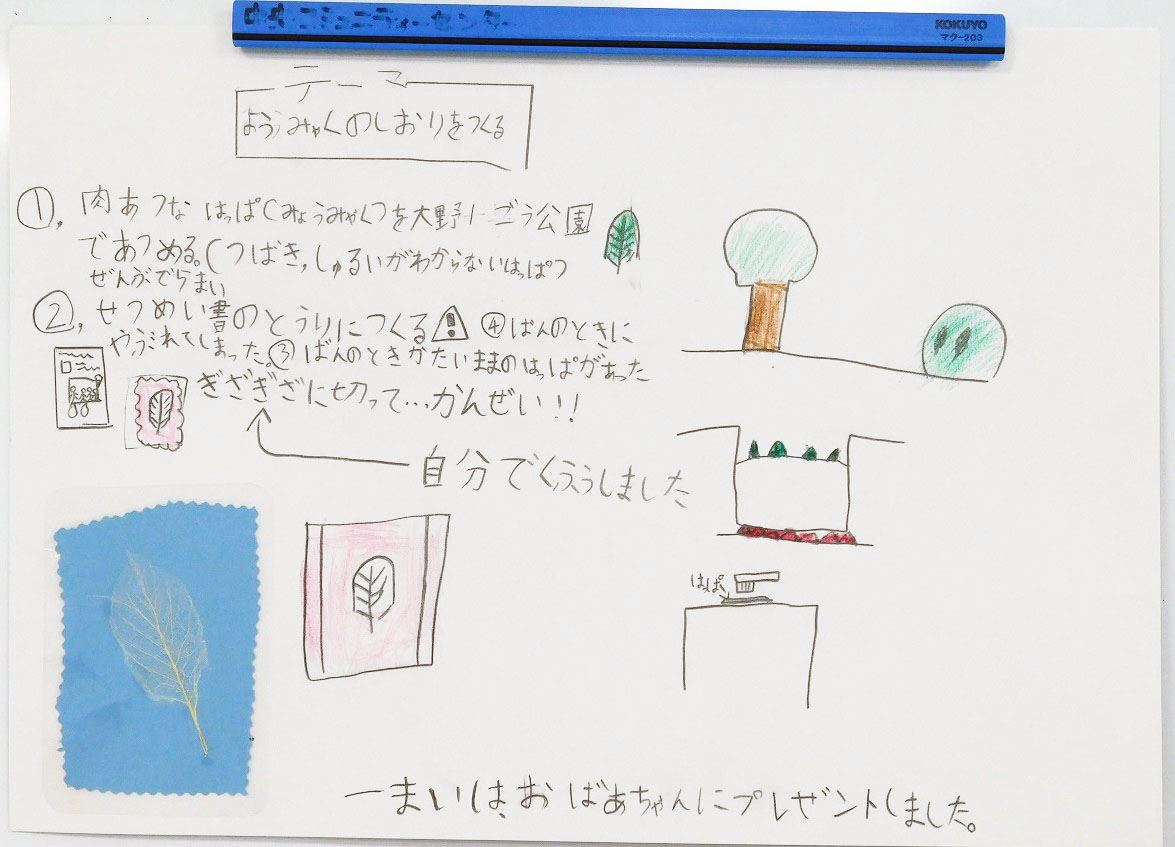 コミュニティーセンター
KOKUYO
マク-203
テーマ
ようみゃくのしおりをつくる
①，肉あつなはっぱ(みょうみゃく)を大野トゴラ公園
であつめる。(つばき，しゅるいがわからないはっぱ)
ぜんぶで5まい
②，せつめい書のとうりにつくる ④ばんのときに
やぶれてしまった。③ばんのときかたいままのはっぱがあった
ぎざぎざに切って…かんせい!!
自分でくふうしました
はっぱ
一まいは、おばあちゃんにプレゼントしました。